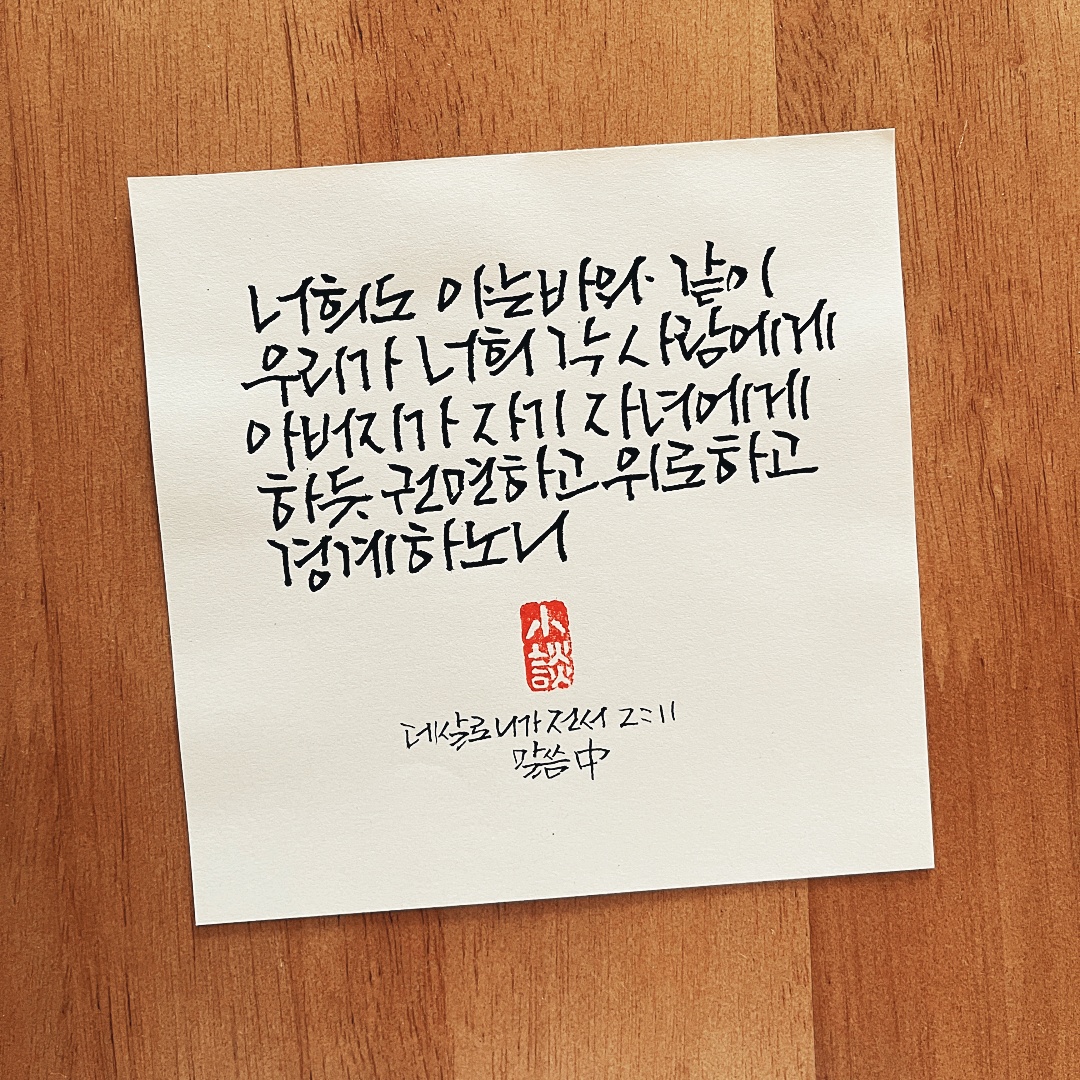 너희도 아는바와 같이
우리가 너희 각 사람에게
아버지가 자기 자녀에게
하듯 권면하고 위로하고
경계하노니
小
談
데살로니가전서 2:11
말씀中